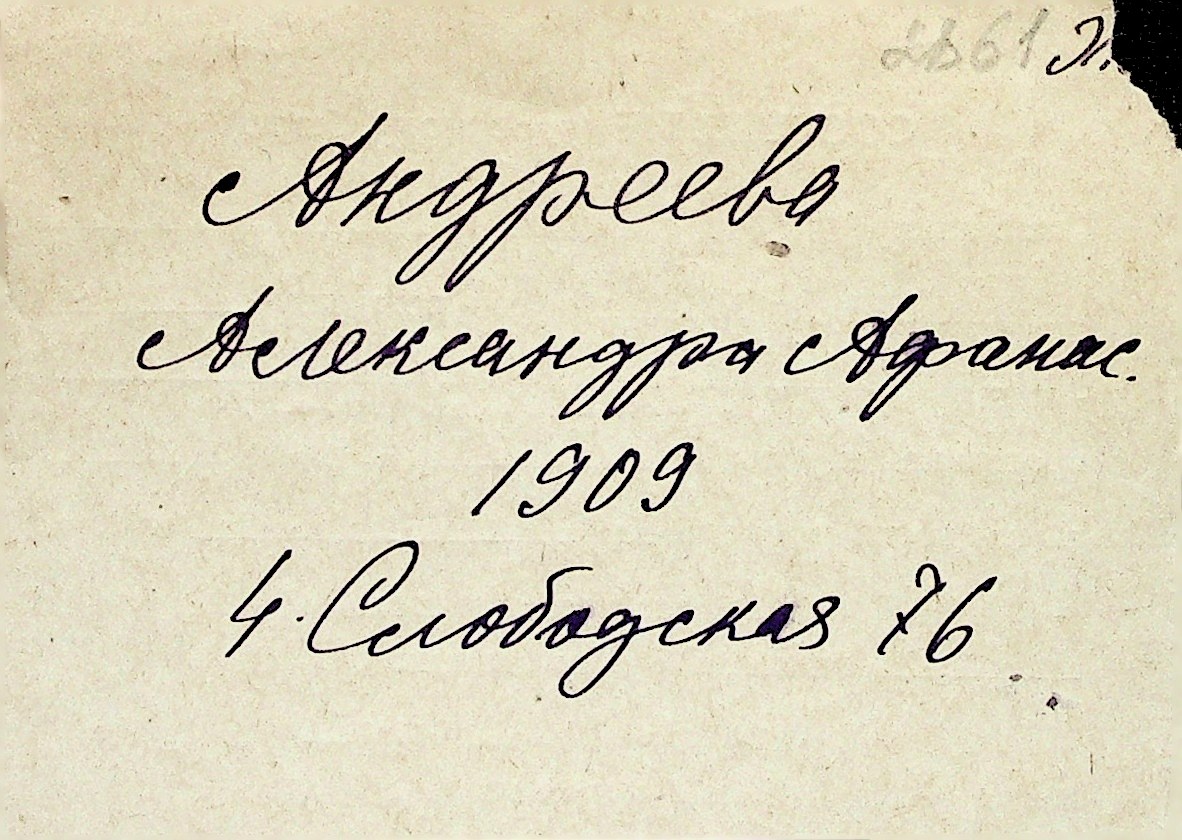 Андреева
Александра Афанас.
1909
4. Слободская 76